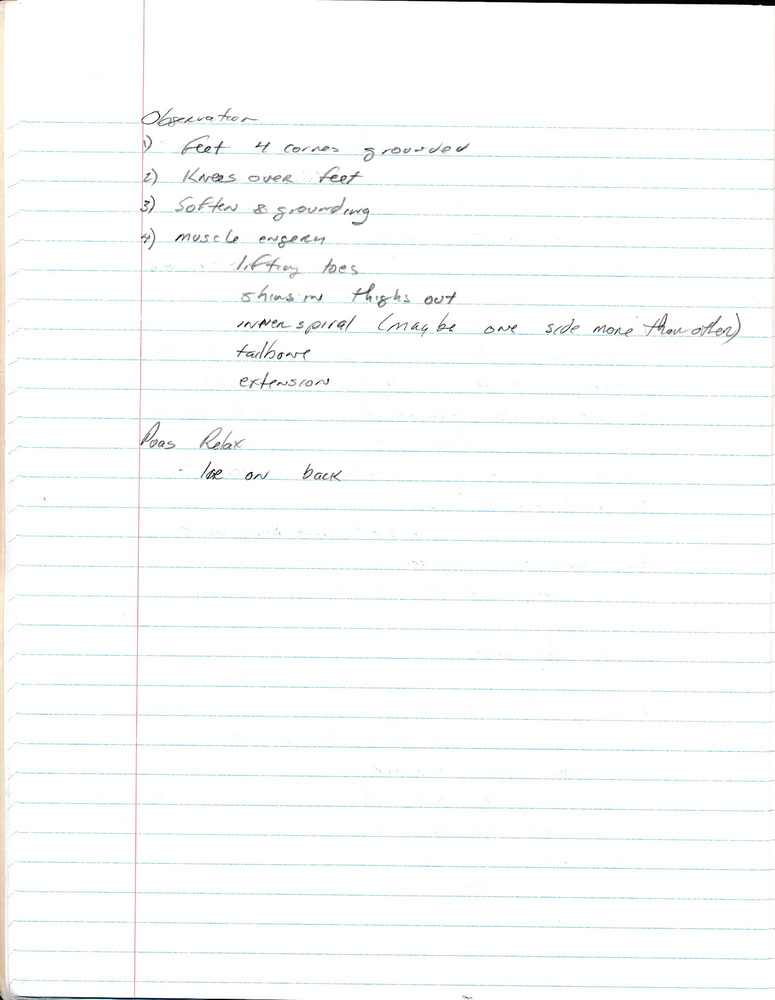 Observation
1) Feet 4 cornes grounded
2) Knees over feet
3) Soften & grounding
4) muscle engery
lifting toes
shins in thighs out
inner spiral (maybe one side more than other)
tailbone
extension
Poas Relax
- lie on back